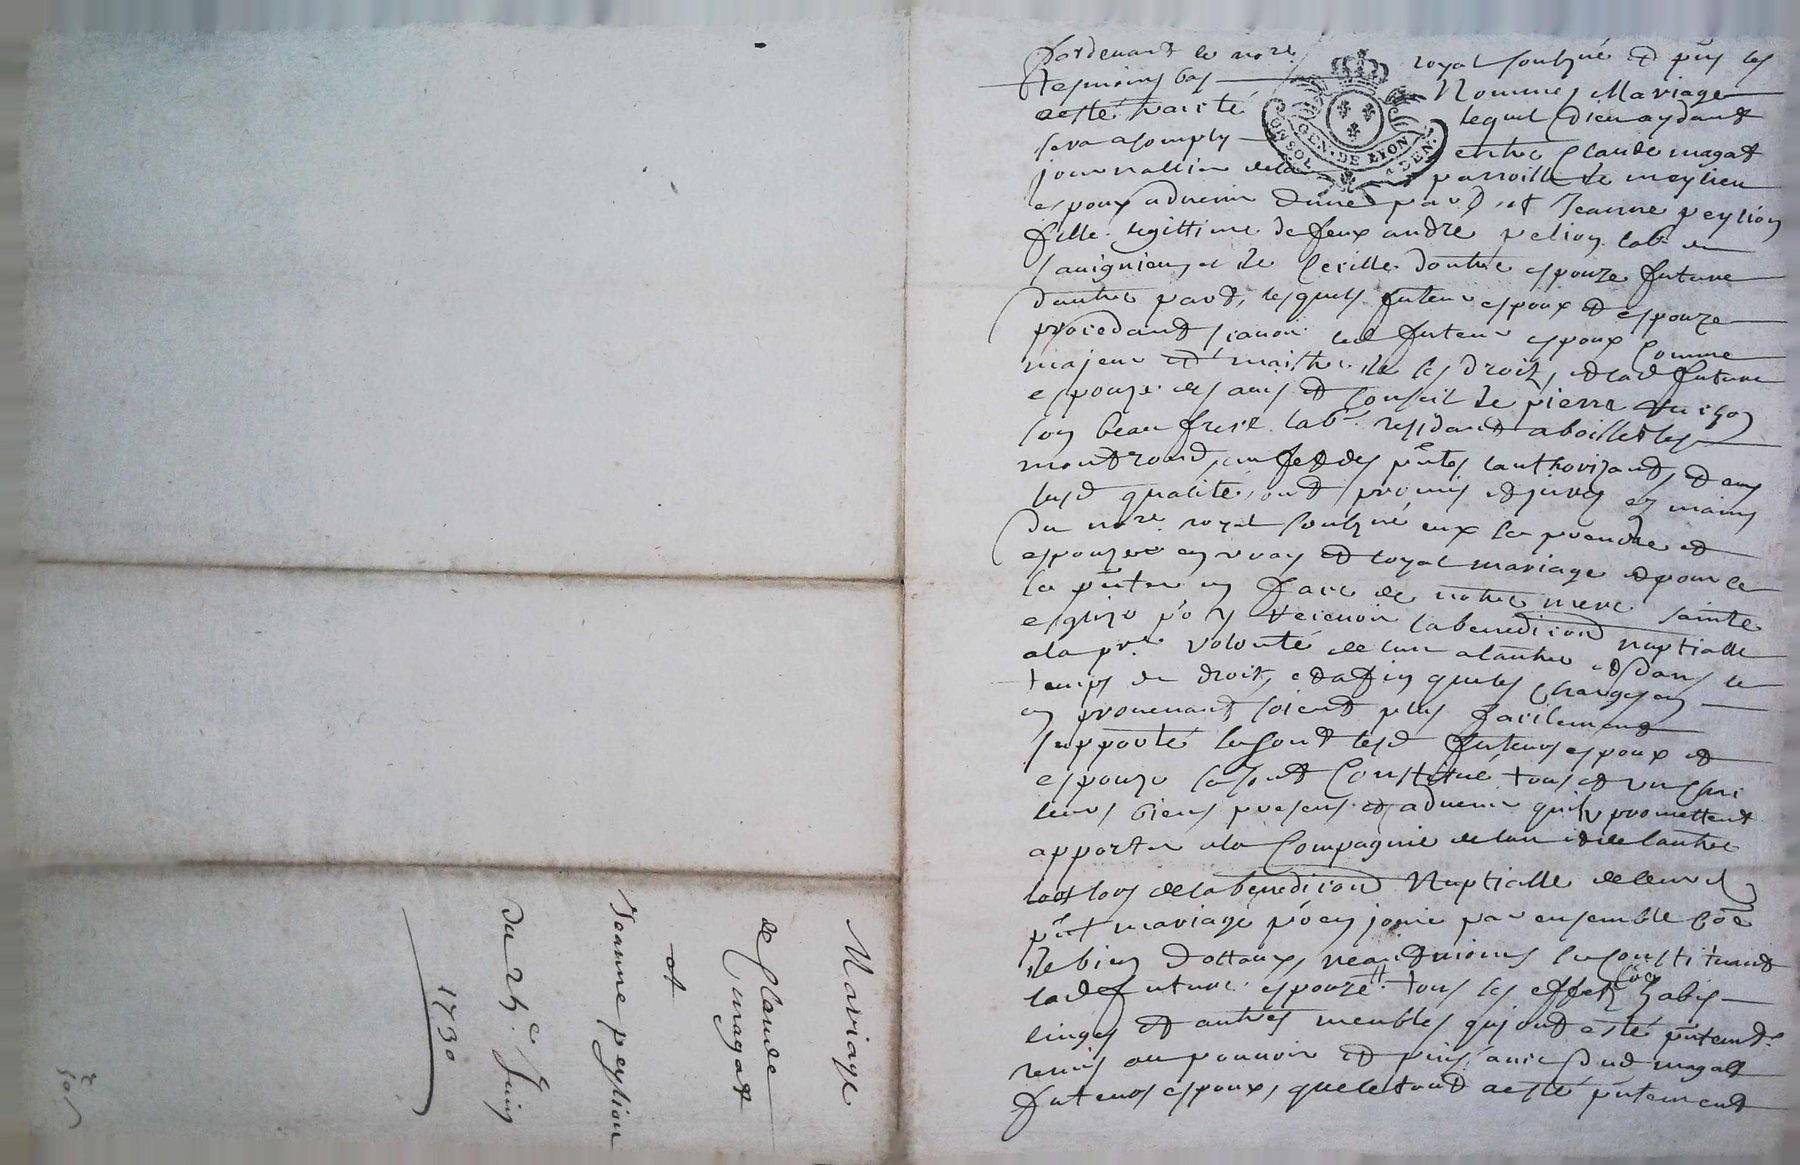 Pardevant le no.re royal soubzné et pñs les
tesmoins bas Nommes Mariage
a esté traicté lequel Dieu aydant
sera acomply entre Claude magat
journallier de la parroisse de meylieu
espoux advenir d'une part, et Jeanne peylion
fille legittime de feux andré pelion lab.r de
savignieu et de Cecille espouze future
d'autre part, lesquels futeur espoux et espouze
procedant scavoir led futeur espoux Comme
majeur et maistre de ses droits, et lad future
espouze de l'avis et Conseil de pierre
son beau frere lab.r residant a boisset les
montrond, au fet des pñtes l'authorizant, et en
lesd qualité, ont promis et jurés es mains
du no.re royal soubzné eux se prendre et
espouzer en vray et loyal mariage et pour ce
se pñter en face de notre mere sainte
esglize p.o y recevoir la benediction nuptialle
a la pr.e volonté de l'un a l'autre et dans le
temps de droit, et afin que les Charges en
en provenant soient plus facilement
supporté se sont lesd futeurs espoux et
espouze Constitué tous et un chacun
leurs biens presens et advenir qu'ils promettent
apporter a la Compagnie de l'un et de l'autre
lors de la benediction Nuptialle de leurd
pñt mariage p.o en jouir par ensemble Cõe
de biens dottaux, neantmoins se constituant
lad future espouze tous ses effets Cõe habis
linges et autres meubles qui ont esté pñtement
remis au pouvoir et puissance dud magatt
futeur espoux, que le tout a esté pñtement
Mariage
de Claude
magatt
et
Jeanne peylion
du 25.e Juin
1730